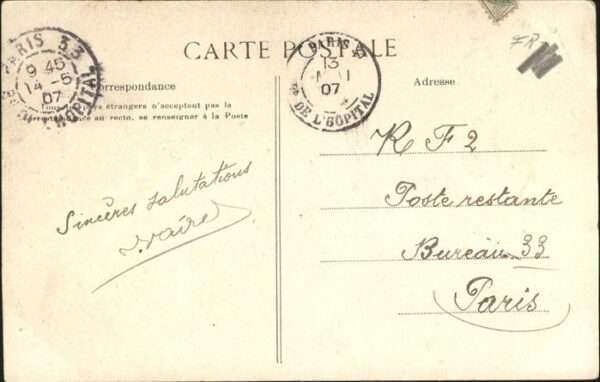 CARTE POSTALE
PARIS 33
9 45
14 -5
07
HOPITAL
PARIS
13
MAI
07
DE L'HÔPITAL
FR
respondance
Adresse
Tous les pays étrangers n'acceptent pas la
au recto, se renseigner à la Poste
Sincères salutations
K F 2
Poste restante
Bureau 33
Paris